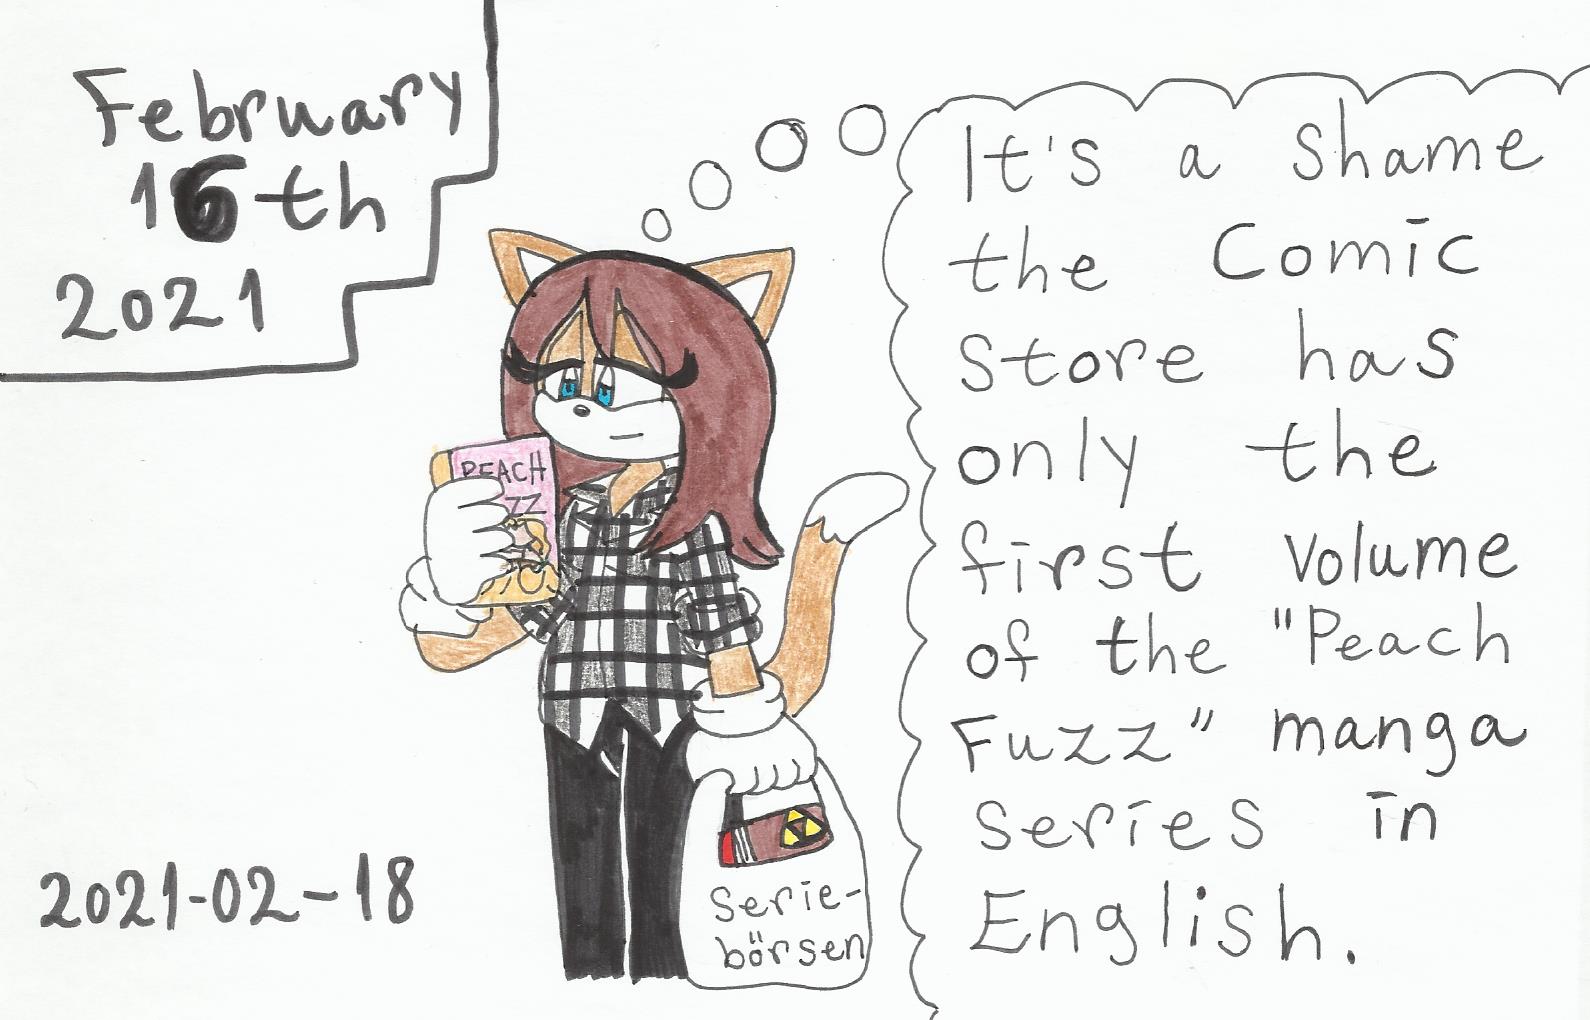 February
16th
2021
It's a shame
the Comic
store has
only the
first volume
of the "Peach
Fuzz" manga
series in
English.
PEACH
ZZ
Serie-
börsen
2021-02-18